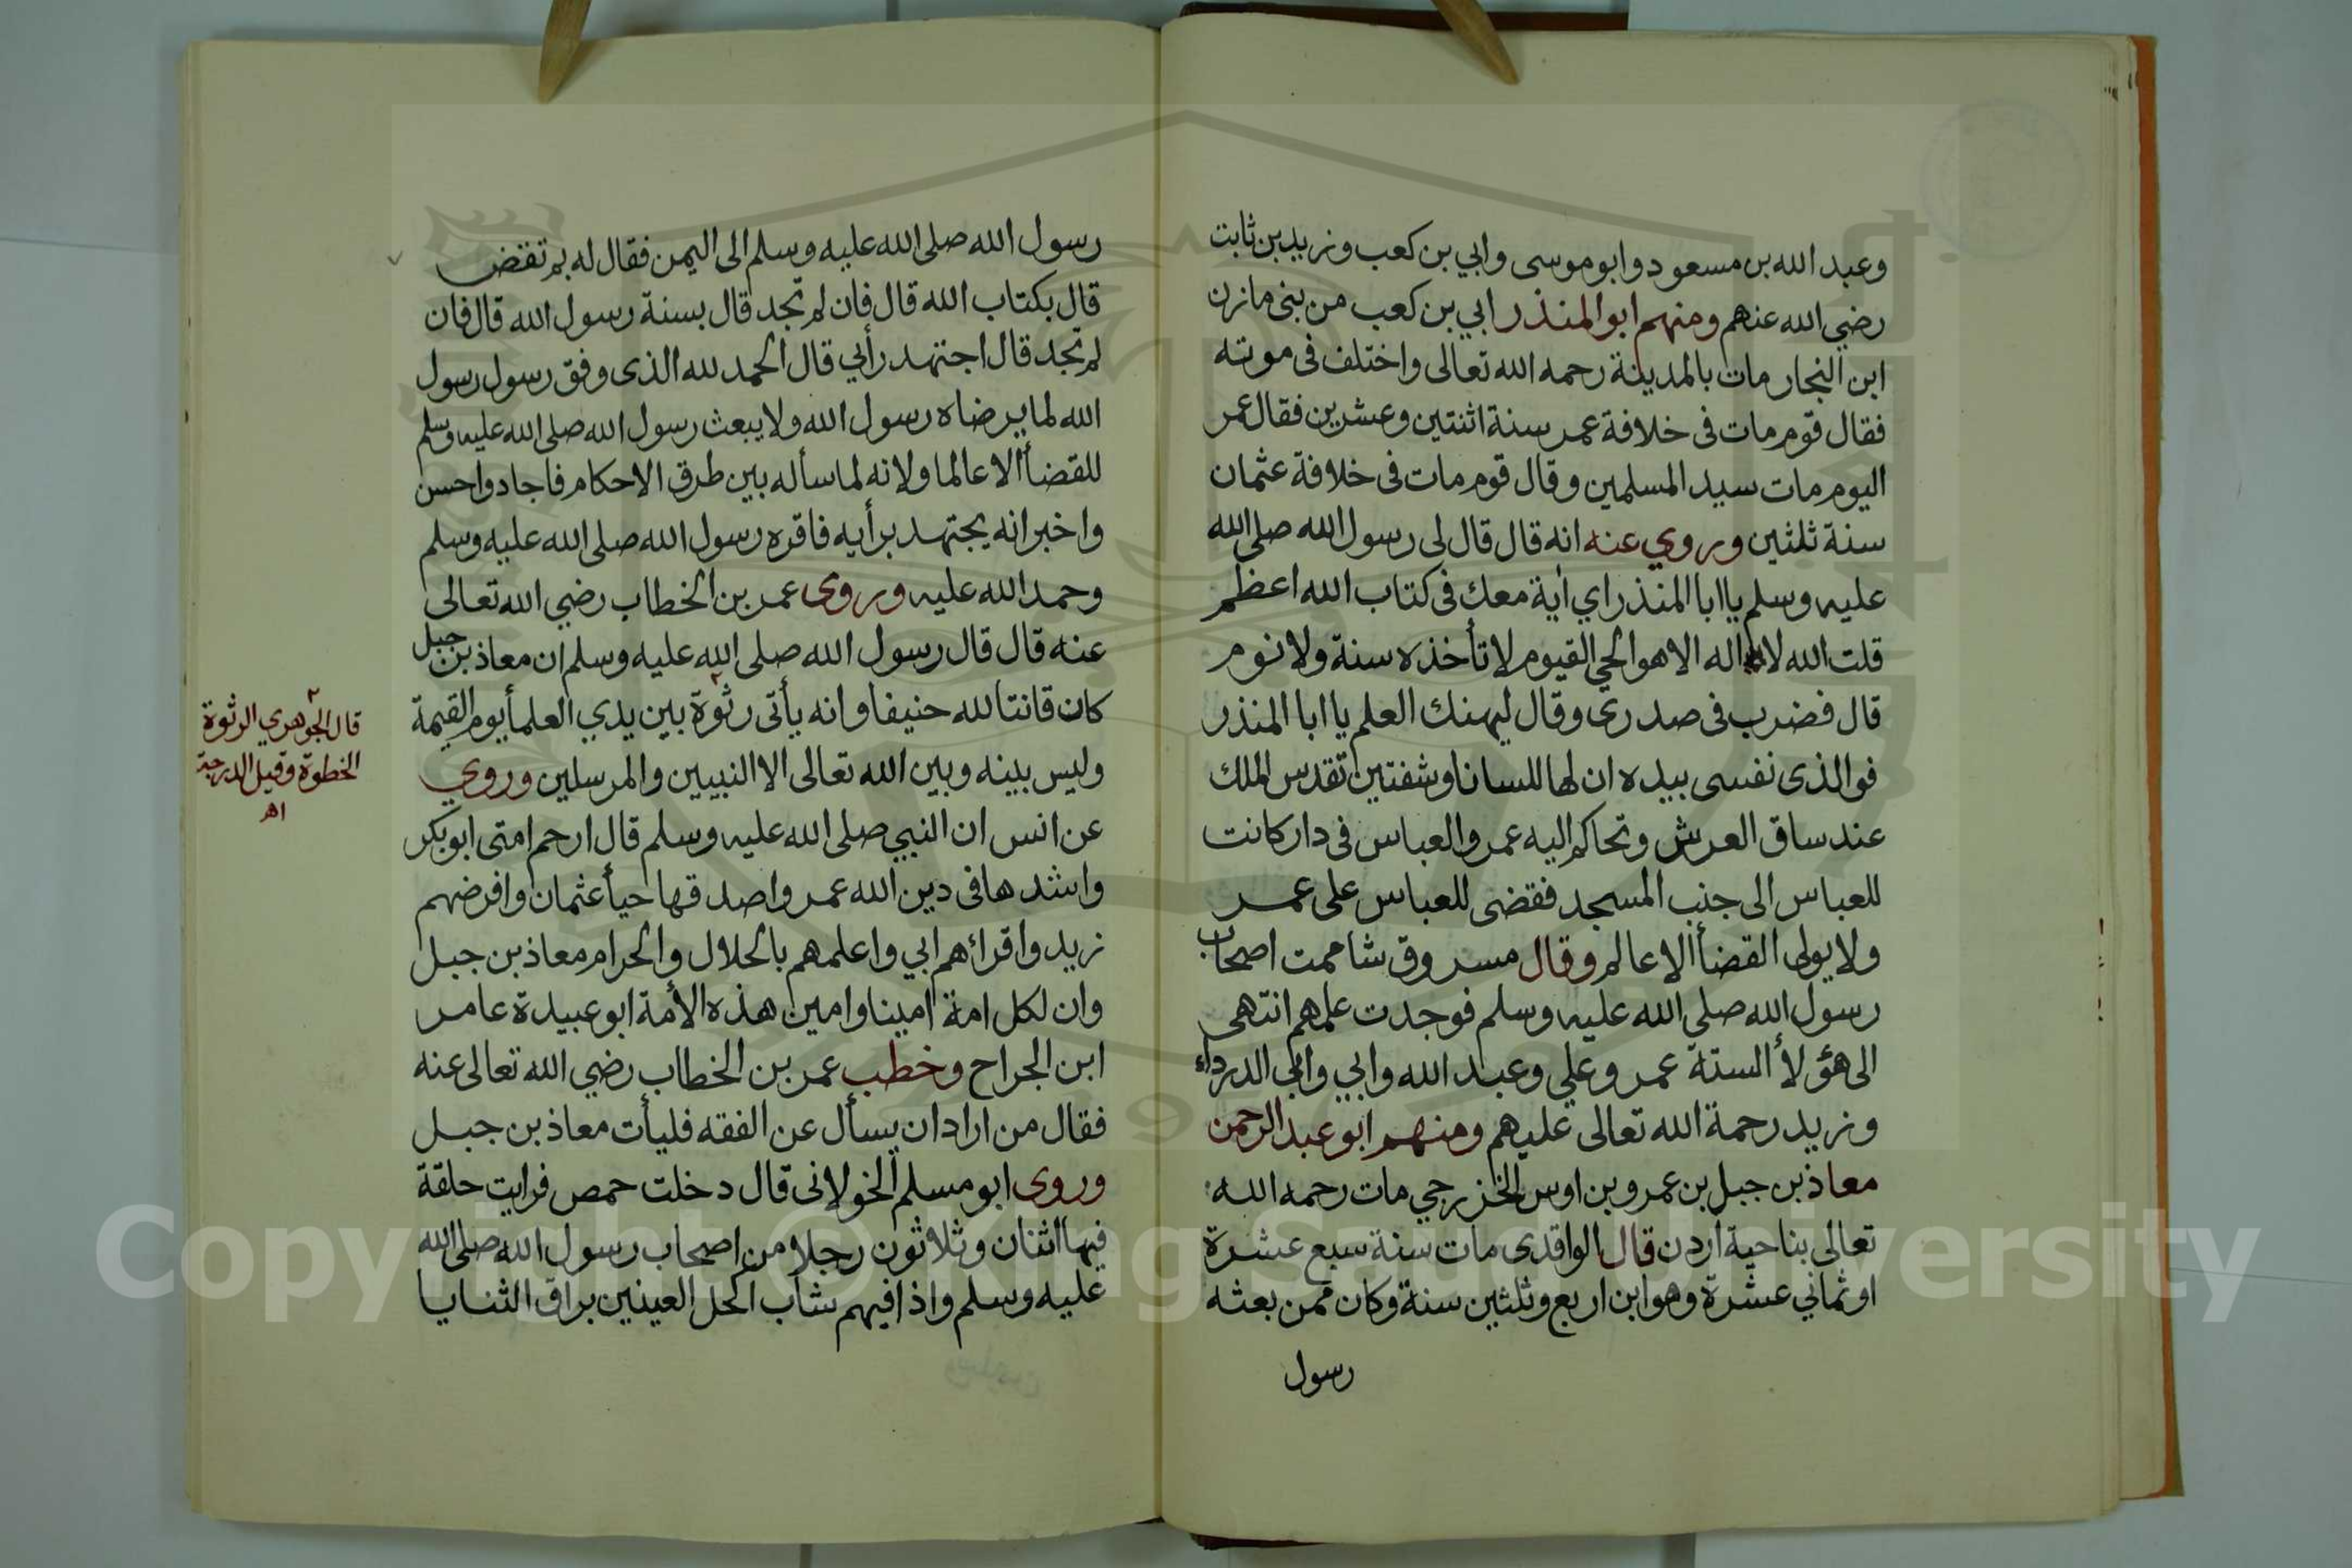 وعبد الله بن مسعود وابو موسى وابي بن كعب وزيد بن ثابت
رضي الله عنهم ومنهم ابو المنذر ابي بن كعب من بنى مازن
ابن النجار مات بالمدينة رحمه الله تعالى واختلف فى موته
فقال قوم مات فى خلافة عمر سنة اثنتين وعشرين فقال عمر
اليوم مات سيد المسلمين وقال قوم مات فى خلافة عثمان
سنة ثلثين وروي عنه انه قال قال لى رسول الله صلى الله
عليه وسلم يا ابا المنذر اي اية معك فى كتاب الله اعظم
قلت الله لا اله الا هو الحي القيوم لا تأخذه سنة ولا نوم
قال فضرب فى صدرى وقال ليهنك العلم يا ابا المنذر
فوالذى نفسى بيده ان لها للسانا وشفتين تقدس الملك
عند ساق العرش وتحاكم اليه عمر والعباس فى دار كانت
للعباس الى جنب المسجد فقضى للعباس على عمر
ولا يولى القضأ الا عالم وقال مسروق شاممت اصحاب
رسول الله صلى الله عليه وسلم فوجدت علمهم انتهى
الى هؤلأ الستة عمر وعلي وعبد الله وابي وابي الدرداء
وزيد رحمة الله تعالى عليهم ومنهم ابو عبد الرحمن
معاذ بن جبل بن عمرو بن اوس الخزرجي مات رحمه الله
تعالى بناحية اردن قال الواقدى مات سنة سبع عشرة
او ثماني عشرة وهو ابن اربع وثلثين سنة وكان ممن بعثه
رسول
رسول الله صلى الله عليه وسلم الى اليمن فقال له بم تقضى
قال بكتاب الله قال فان لم تجد قال بسنة رسول الله قال فان
لم تجد قال اجتهد رأيي قال الحمد لله الذى وفق رسول رسول
الله لما يرضاه رسول الله ولا يبعث رسول الله صلى الله عليه وسلم
للقضأ الا عالما ولانه لما سأله بين طرق الاحكام فاجاد واحسن
واخبر انه يجتهد برأيه فاقره رسول الله صلى الله عليه وسلم
وحمد الله عليه وروى عمر بن الخطاب رضي الله تعالى
عنه قال قال رسول الله صلى الله عليه وسلم ان معاذ بن جبل
كان قانتا لله حنيفا وانه يأتى رثوة بين يدي العلمأ يوم القيمة
وليس بينه وبين الله تعالى الا النبيين والمرسلين وروي
عن انس ان النبي صلى الله عليه وسلم قال ارحم امتى ابو بكر
واشدها فى دين الله عمر واصدقها حيأ عثمان وافرضهم
زيد واقرائهم ابي واعلمهم بالحلال والحرام معاذ بن جبل
وان لكل امة امينا وامين هذه الأمة ابو عبيدة عامر
ابن الجراح وخطب عمر بن الخطاب رضي الله تعالى عنه
فقال من اراد ان يسأل عن الفقه فليأت معاذ بن جبل
وروى ابو مسلم الخولانى قال دخلت حمص فرايت حلقة
فيها اثنان وثلاثون رجلا من اصحاب رسول الله صلى الله
عليه وسلم واذا فيهم شاب اكحل العينين براق الثنايا
قال الجوهري الرثوة
الخطوة وقيل الدرجة
اهـ
Copyright © King Saud University